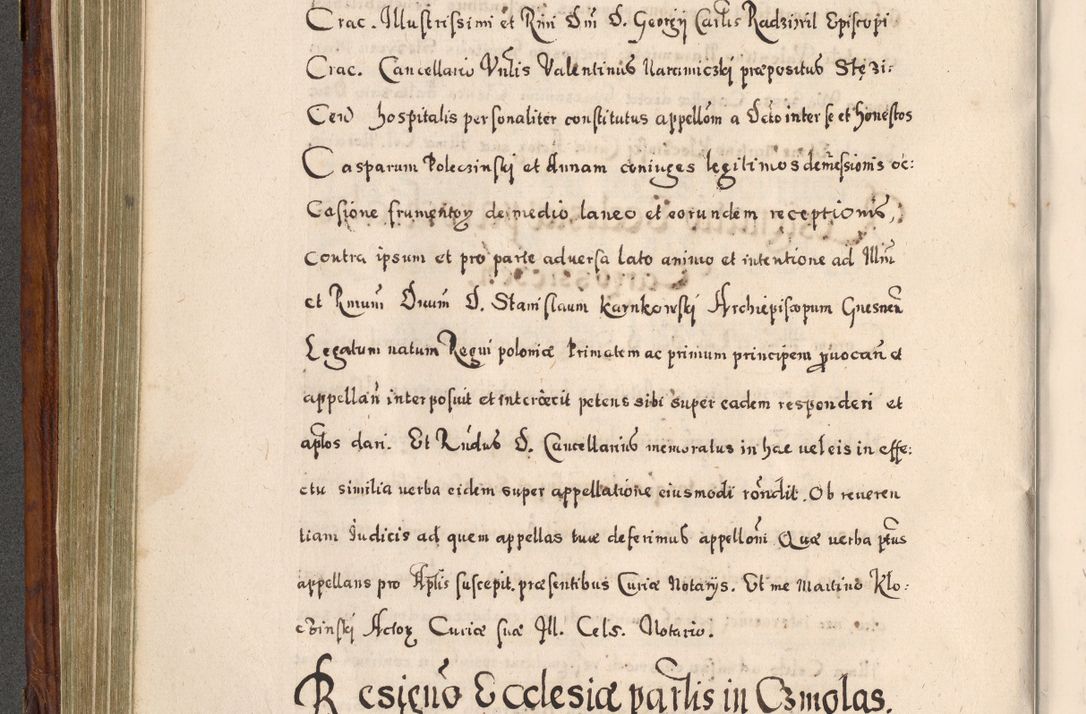 Crac. Illustrissimi et Rmi Dni D. Georgij Carlis Radziwil Episcopi
Crac. Cancellario Vnlis Valentinus Naramiczkj præpositus Stęzi:
Cen̄ hospitalis personaliter constitutus appellōm a Dcto inter se et honestos
Casparum Poleczinskj et Annam coniuges legitimos demēssionis oc:
Casione frumentoꝝ de medio laneo et eorundem receptionis,
Contra ipsum et pro parte adversa lato animo et intentione ad Illm̄
et Rmum Dnum D. Stanislaum Karnkowskj Archiepiscopum Gnesnen̄
Legatum natum Regni poloniæ Primatem ac primum principem ꝓuocan̄ et
appellan̄ interposuit et interiecit petens sibi super eadem responderi et
aplos dari. Et Rndus D. Cancellarius memoratus in hæc uel eis in effe:
ctu similia uerba eidem super appellatione eiusmodi rōndit. Ob reueren
tiam Iudicis ad quem appellas tuæ deferimus appellōni Quæ uerba ptus
appellans pro Aplis suscepit. præsentibus Curiæ Notarijs. Et me Martino Klo:
czinskj Actoꝝ Curiæ suæ Ill. Cels. Notario.
Resignō Ecclesiæ parlis in Czmolas.